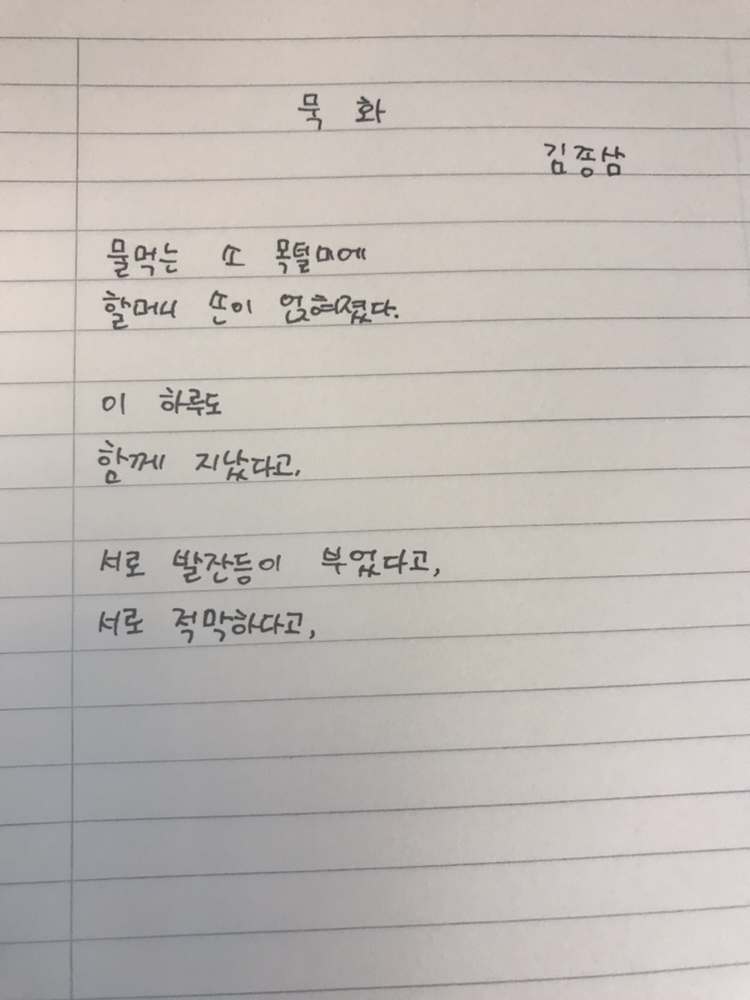 묵 화
김종삼
물먹는 소 목덜미에
할머니 손이 얹혀졌다.
이 하루도
함께 지났다고,
서로 발잔등이 부었다고,
서로 적막하다고,